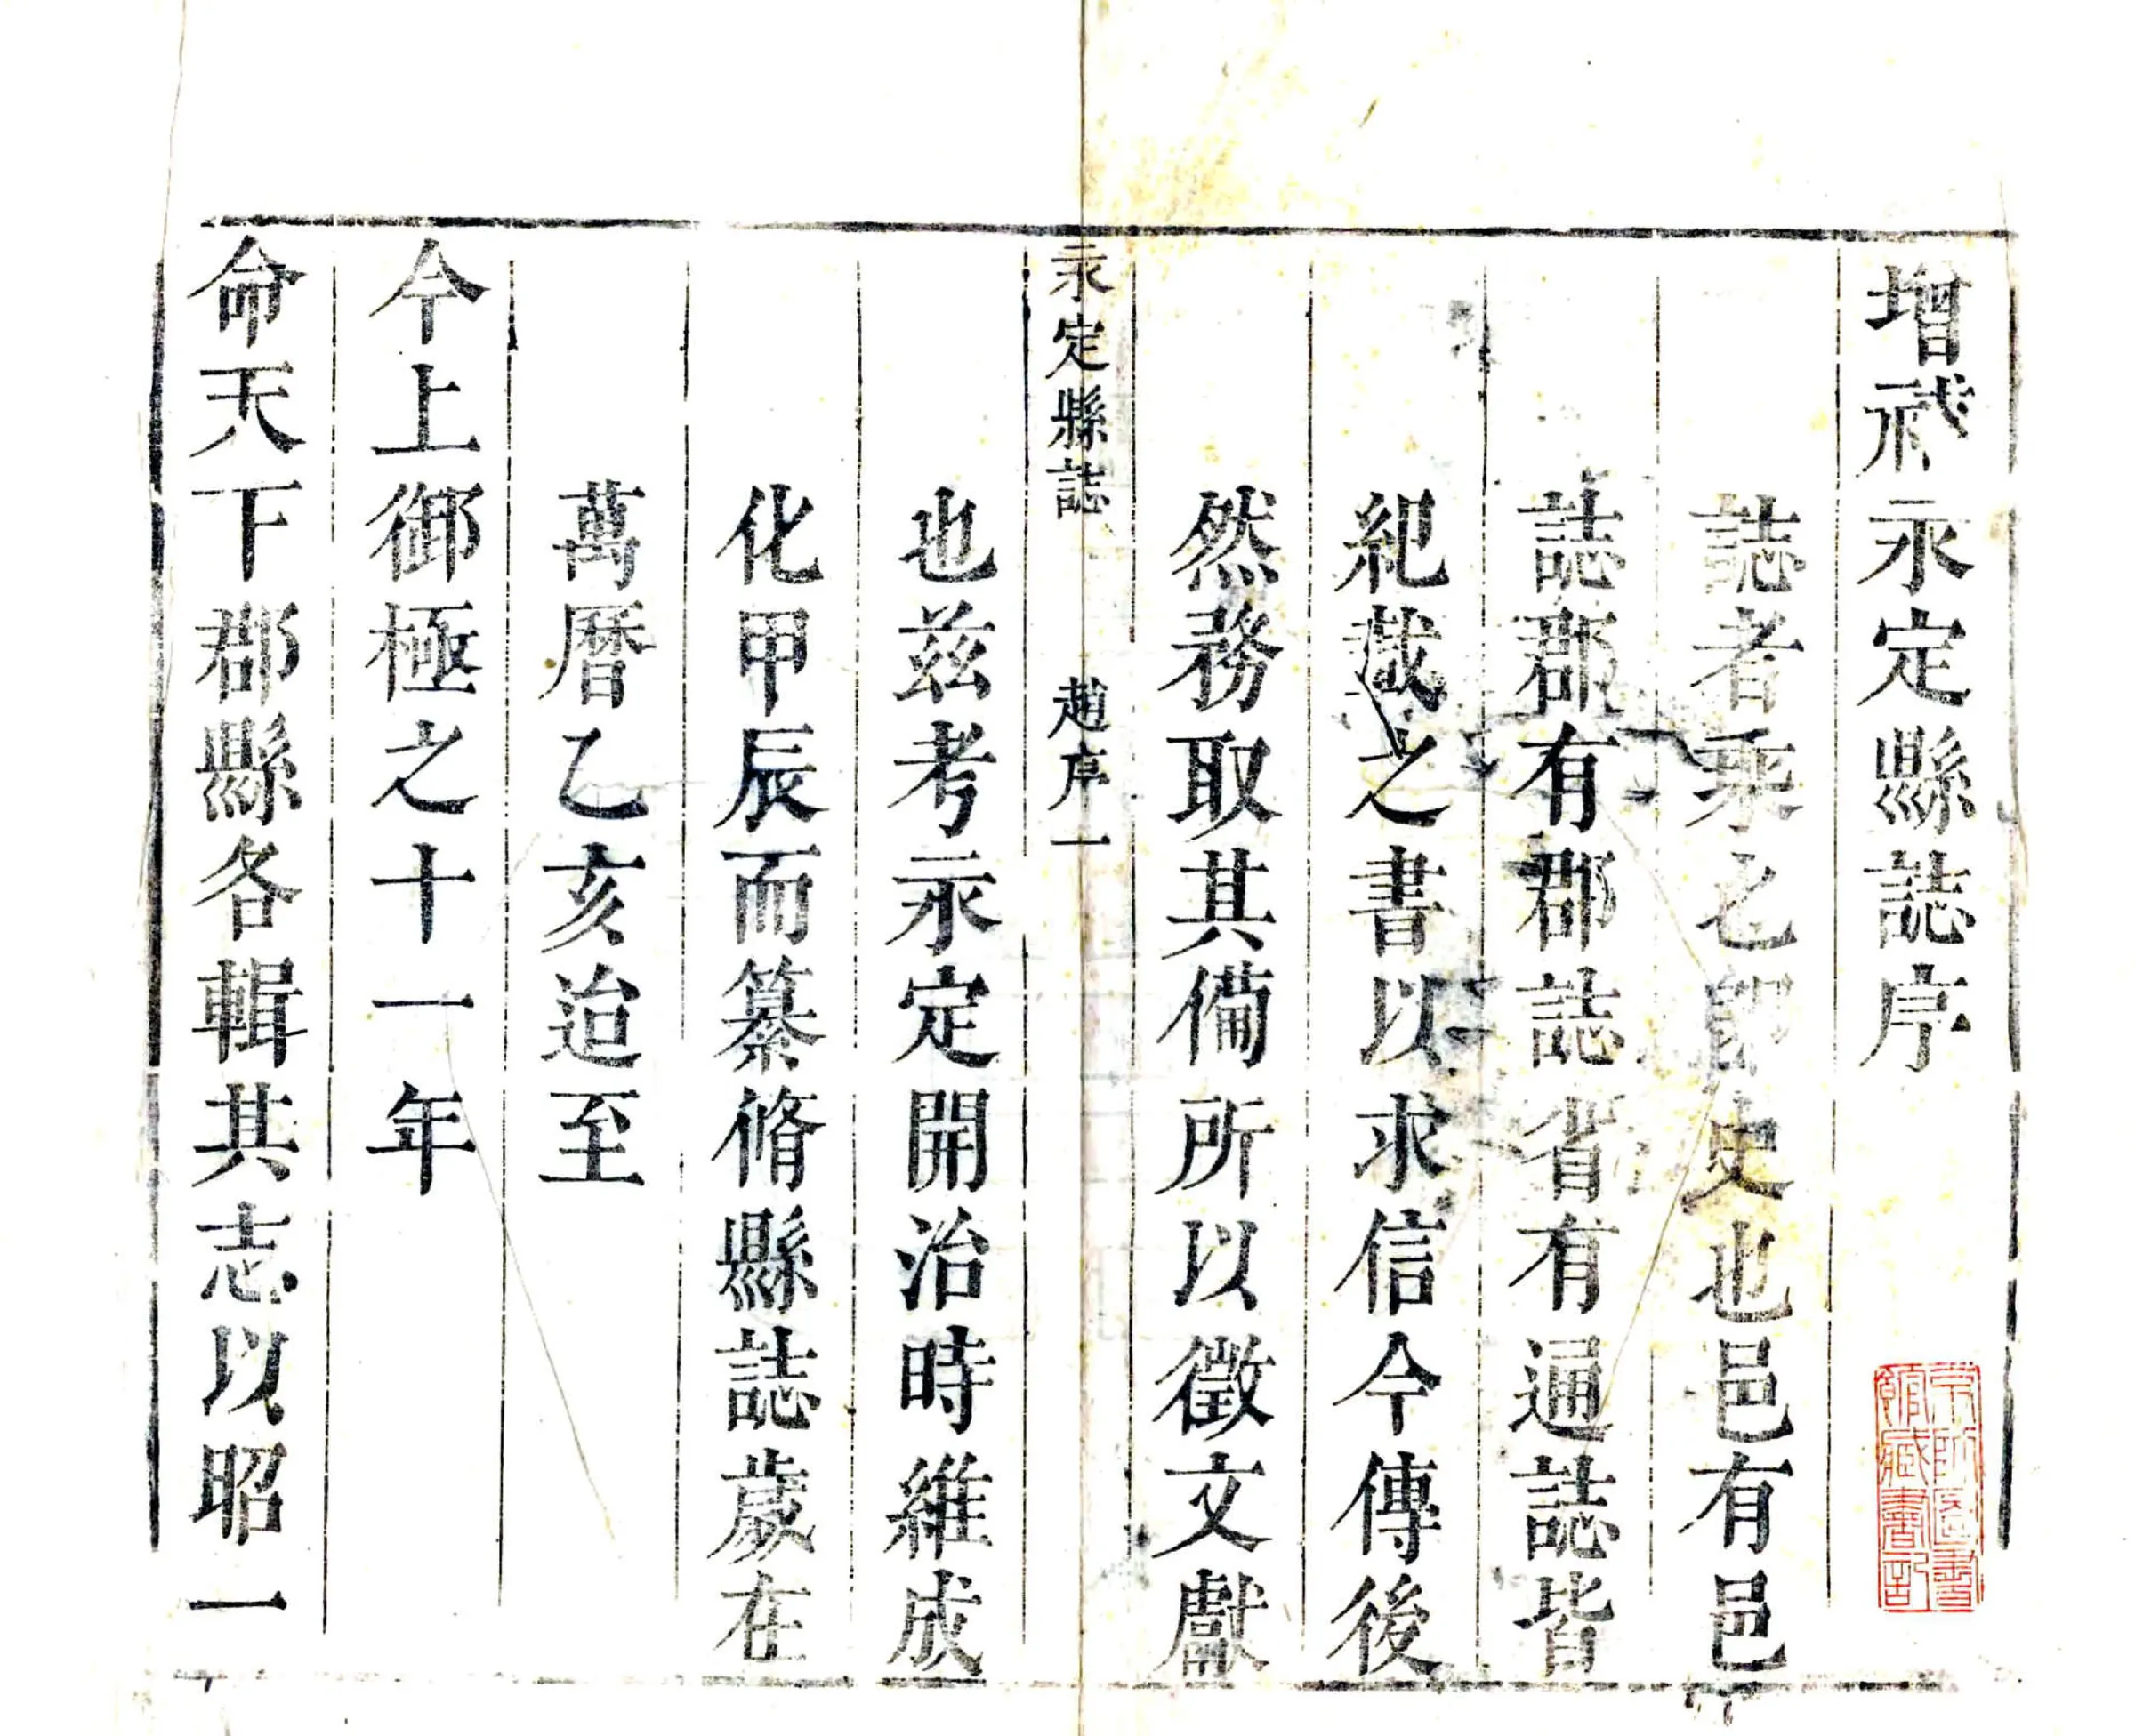 增貳永定縣誌序
誌者乘也即史也邑有邑
誌郡有郡誌省有通誌皆
紀載之書以求信今傳後
然務取其備所以徵文獻
永定縣誌 趙序 一
也兹考永定開治時維成
化甲辰而纂脩縣誌歲在
萬曆乙亥迨至
今上御極之十一年
命天下郡縣各輯其志以昭一
京師圖書
館藏書記